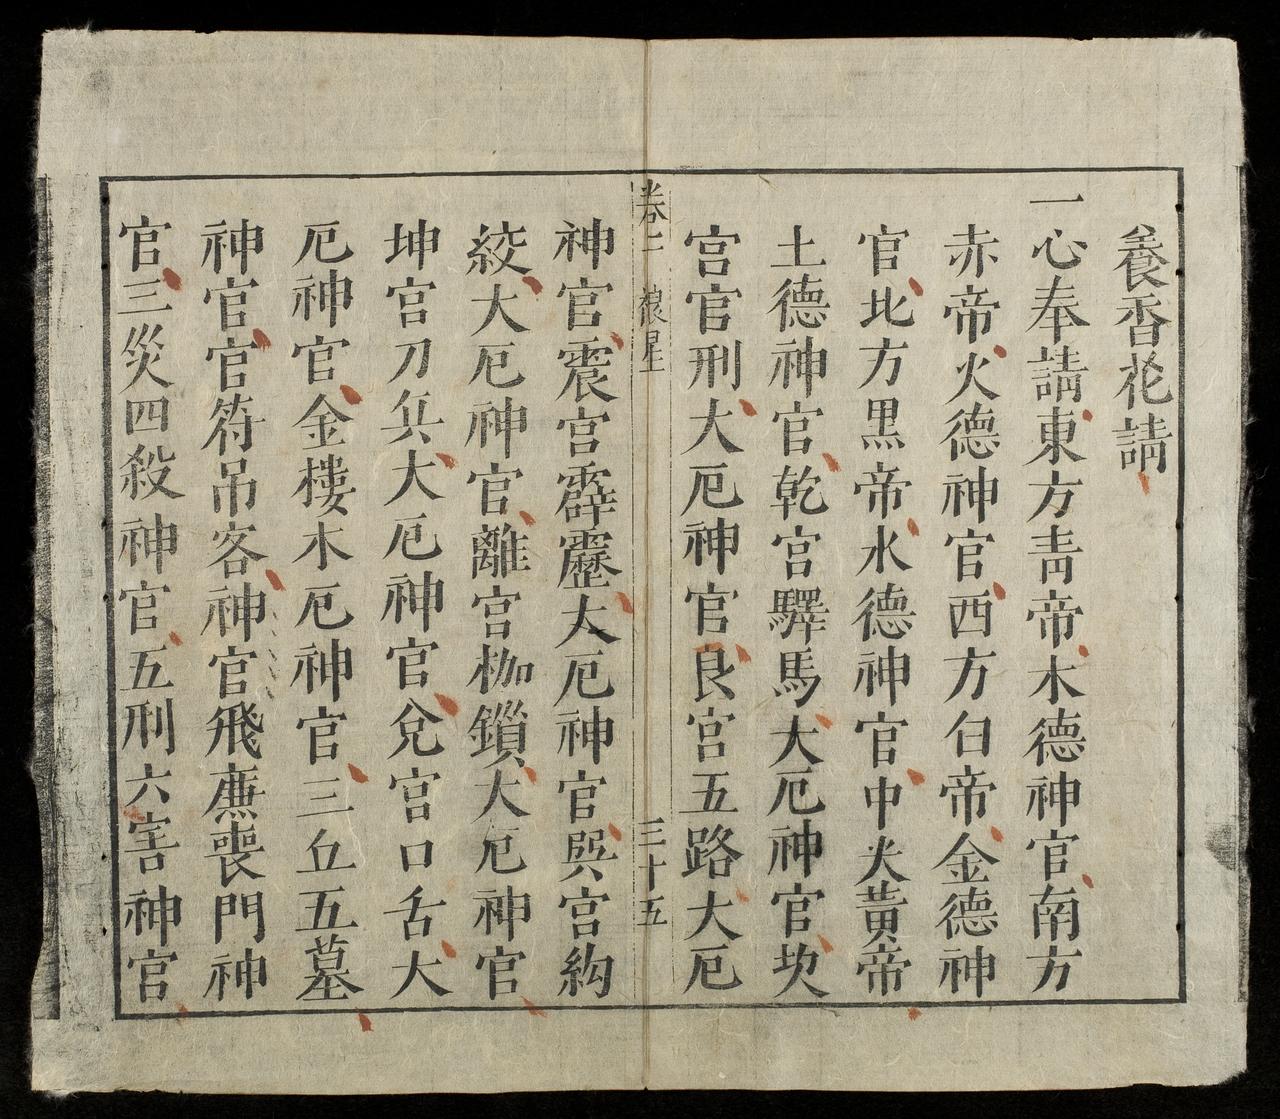 養香花請
一心奉請東方青帝木德神官南方
赤帝火德神官西方白帝金德神
官北方黑帝水德神官中央黃帝
土德神官乾宮驛馬大厄神官坎
宮官刑大厄神官艮宮五路大厄
卷二 禳星 三十五
神官震宮霹靂大厄神官巽宮絇
絞大厄神官離宮枷鎖大厄神官
坤宮刀兵大厄神官兌宮口舌大
厄神官金樓木厄神官三丘五墓
神官官符吊客神官飛廉喪門神
官三災四殺神官五刑六害神官